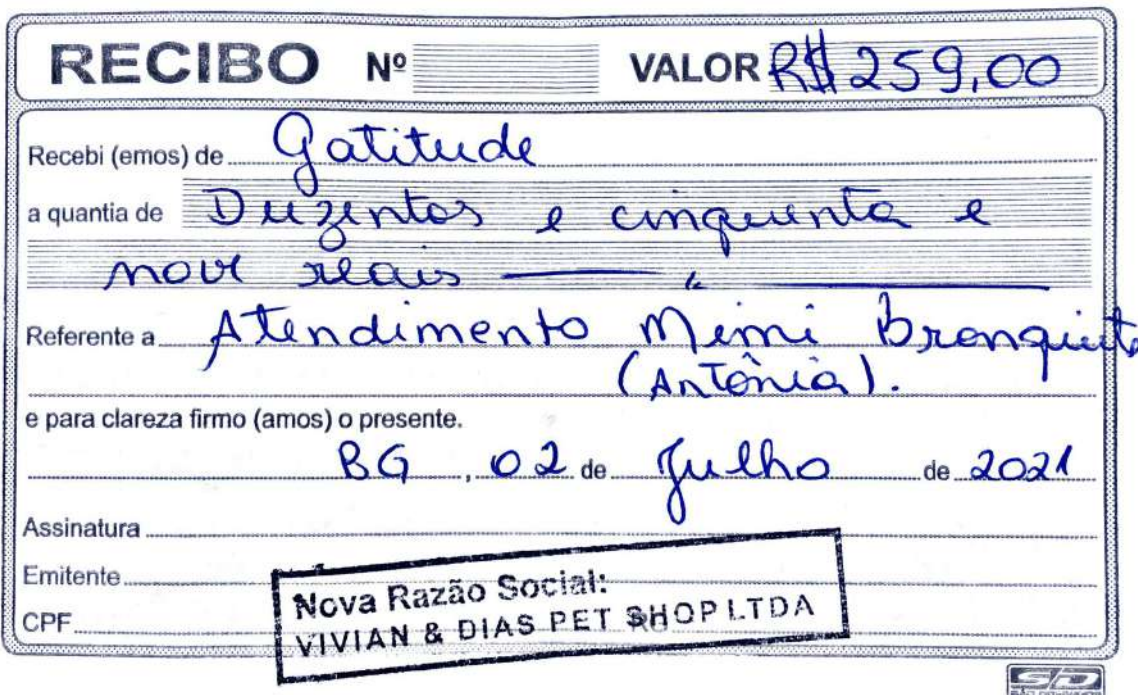 RECIBO Nº VALOR R$ 259,00
Recebi (emos) de Gatitude
a quantia de Duzentos e cinquenta e
nove reais
Referente a Atendimento Mimi Bronquite
(Antônia).
e para clareza firmo (amos) o presente.
BG, 02 de Julho de 2021
Assinatura
Emitente
CPF
Nova Razão Social:
VIVIAN & DIAS PET SHOP LTDA
S/D